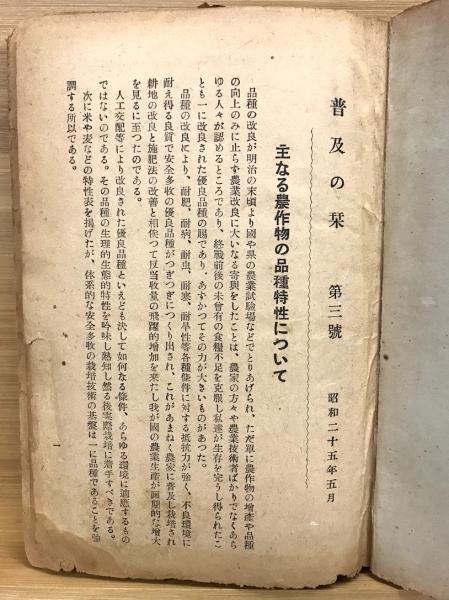 普及の栞　第三號　昭和二十五年五月
主なる農作物の品種特性について
品種の改良が明治の末頃より國や県の農業試驗場などでとりあげられ、ただ單に農作物の增產や品種
の向上のみに止らず農業改良に大いなる寄與をしたことは、農家の方々や農業技術者ばかりでなくあら
ゆる人々が認めるところであり、終戰前後の未曾有の食糧不足を克服し私達が生存を完うし得られたこ
とも一に改良された優良品種の賜であり、あずかつてその力が大きいものがあつた。
品種の改良により、耐肥、耐病、耐虫、耐寒、耐旱性等各種條件に対する抵抗力が強く、不良環境に
耐え得る良質で安全多收の優良品種がつぎつぎにつくり出され、これがあまねく農家に普及し栽培され
耕地の改良と施肥法の改善と相俟つて反当收量の飛躍的增加を来たし我が國の農業生產が画期的な增大
を見るに至つたのである。
人工交配等により改良された優良品種といえども決して如何なる條件、あらゆる環境に適應するもの
ではないのである。その品種の生理的生態的特性を吟味し熟知し然る後実際栽培に着手すべきである。
次に米や麦などの特性表を揭げたが、体系的な安全多收の栽培技術の基盤は一に品種であることを強
調する所以である。
一